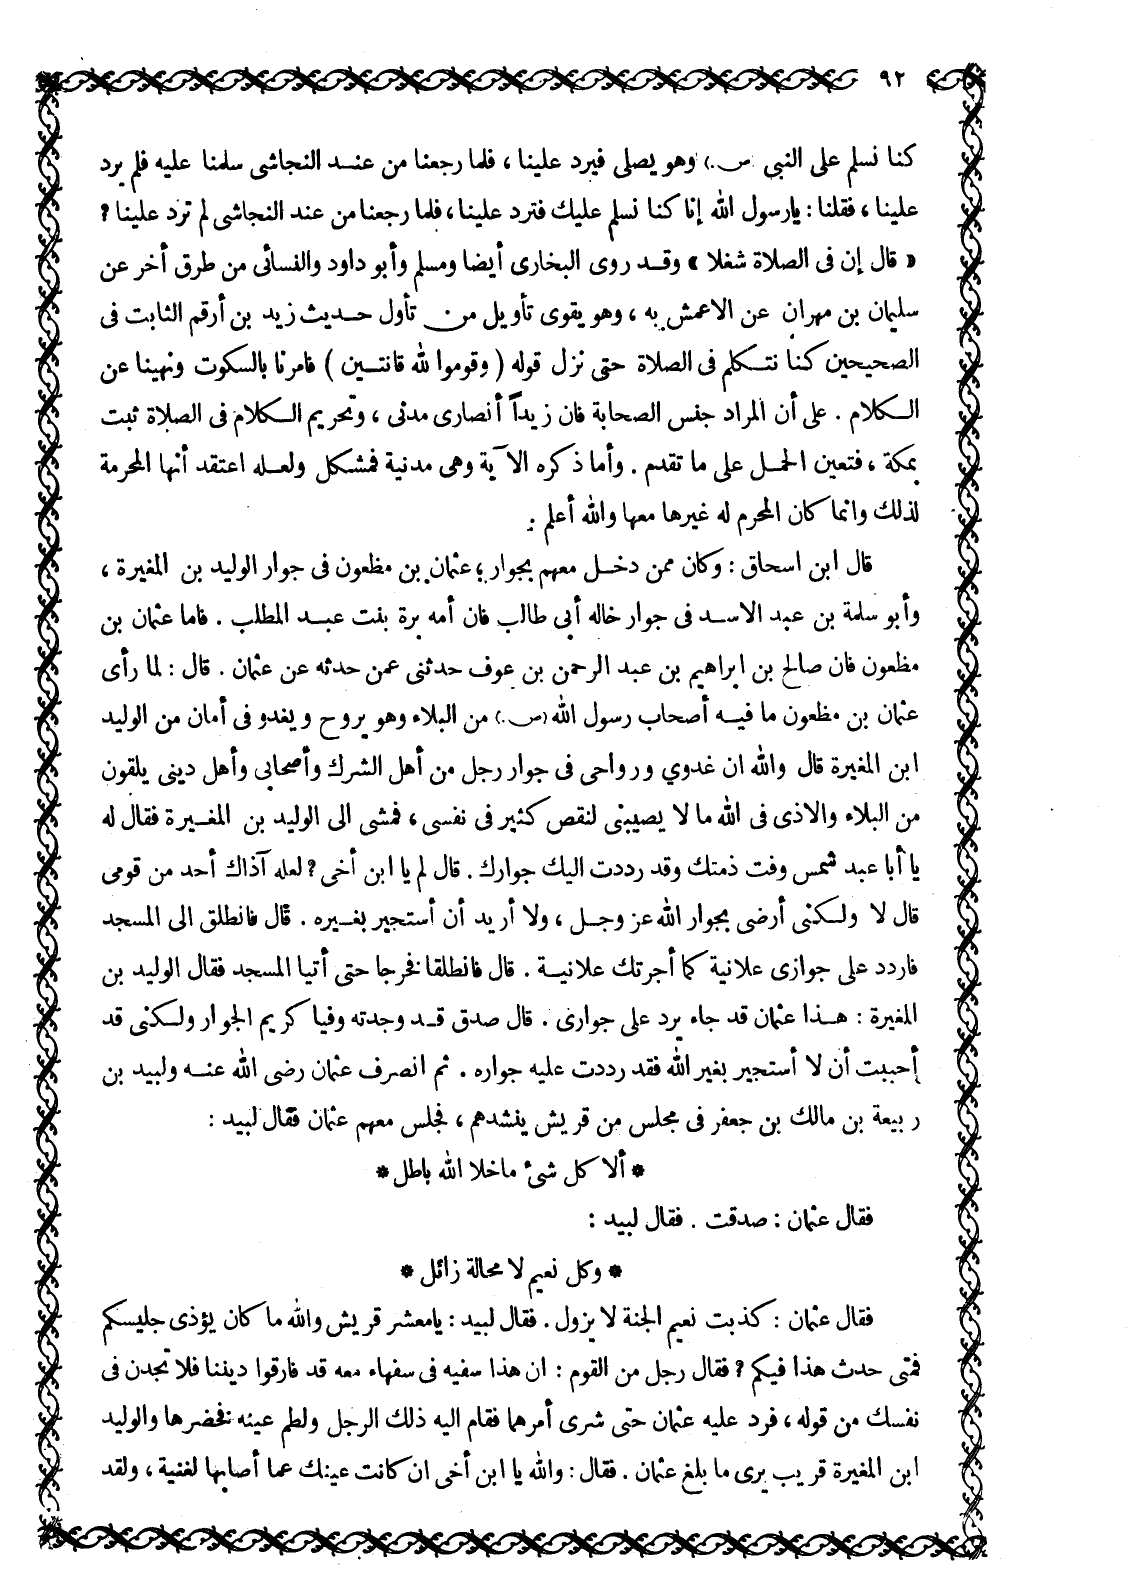 ٩٢
كنا نسلم على النبى (ص.) وهو يصلى فيرد علينا ، فلما رجعنا من عنـد النجاشى سلمنا عليه فلم يرد
علينا ، فقلنا : يارسول الله إنا كنا نسلم عليك فترد علينا ، فلما رجعنا من عند النجاشى لم ترد علينا ؟
« قال إن فى الصلاة شغلا » وقـد روى البخارى أيضا ومسلم وأبو داود والنسائى من طرق أخر عن
سليمان بن مهران عن الاعمش به ، وهو يقوى تأويل من تأول حـديث زيد بن أرقم الثابت فى
الصحيحين كنا نتـكلم فى الصلاة حتى نزل قوله ( وقوموا لله قانتـين ) فامرنا بالسكوت ونهينا عن
الـكلام . على أن المراد جنس الصحابة فان زيداً أنصارى مدنى ، وتحريم الـكلام فى الصلاة ثبت
بمكة ، فتعين الحمـل على ما تقدم . وأما ذكره الآية وهى مدنية فمشكل ولعـله اعتقد أنها المحرمة
لذلك وانما كان المحرم له غيرها معها والله أعلم .
قال ابن اسحاق : وكان ممن دخـل معهم بجوار ؛ عثمان بن مظعون فى جوار الوليد بن المغيرة ،
وأبو سلمة بن عبد الاسـد فى جوار خاله أبى طالب فان أمه برة بنت عبـد المطلب . فاما عثمان بن
مظعون فان صالح بن ابراهيم بن عبد الرحمن بن عوف حدثنى عمن حدثه عن عثمان . قال : لما رأى
عثمان بن مظعون ما فيـه أصحاب رسول الله (ص.) من البلاء وهو يروح ويغدو فى أمان من الوليد
ابن المغيرة قال والله ان غدوي ورواحى فى جوار رجل من أهل الشرك وأصحابى وأهل دينى يلقون
من البلاء والاذى فى الله ما لا يصيبنى لنقص كثير فى نفسى ، فمشى الى الوليد بن المغـيرة فقال له
يا أبا عبد شمس وفت ذمتك وقد رددت اليك جوارك . قال لم يا ابن أخى ؟ لعله آذاك أحد من قومى
قال لا ولـكنى أرضى بجوار الله عز وجـل ، ولا أريد أن أستجير بغـيره . قال فانطلق الى المسجد
فاردد على جوازى علانية كما أجرتك علانيـة . قال فانطلقا فخرجا حتى أتيا المسجد فقال الوليد بن
المغيرة : هـذا عثمان قد جاء يرد على جوارى . قال صدق قـد وجدته وفيا كريم الجوار ولـكنى قد
أحببت أن لا أستجير بغير الله فقد رددت عليه جواره . ثم انصرف عثمان رضى الله عنـه ولبيد بن
ربيعة بن مالك بن جعفر فى مجلس من قريش ينشدهم ، فجلس معهم عثمان فقال لبيد :
* ألا كل شئ ماخلا الله باطل *
فقال عثمان : صدقت . فقال لبيد :
* وكل نعيم لا محالة زائل *
فقال عثمان : كذبت نعيم الجنة لا يزول . فقال لبيد : يامعشر قريش والله ما كان يؤذى جليسكم
فمتى حدث هذا فيكم ؟ فقال رجل من القوم : ان هذا سفيه فى سفهاء معه قد فارقوا ديننا فلا تجدن فى
نفسك من قوله ، فرد عليه عثمان حتى شرى أمرهما فقام اليه ذلك الرجل ولطم عينه فخضرها والوليد
ابن المغيرة قريب يرى ما بلغ عثمان . فقال : والله يا ابن أخى ان كانت عينك عما أصابها لغنية ، ولقد